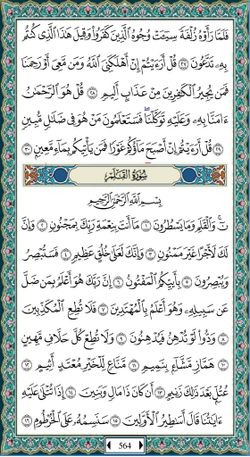 فَلَمَّا رَأَوْهُ زُلْفَةً سِيٓـَٔتْ وُجُوهُ ٱلَّذِينَ كَفَرُوا۟ وَقِيلَ هَٰذَا ٱلَّذِى كُنتُم
بِهِۦ تَدَّعُونَ ٢٧ قُلْ أَرَءَيْتُمْ إِنْ أَهْلَكَنِىَ ٱللَّهُ وَمَن مَّعِىَ أَوْ رَحِمَنَا
فَمَن يُجِيرُ ٱلْكَٰفِرِينَ مِنْ عَذَابٍ أَلِيمٍ ٢٨ قُلْ هُوَ ٱلرَّحْمَٰنُ
ءَامَنَّا بِهِۦ وَعَلَيْهِ تَوَكَّلْنَا فَسَتَعْلَمُونَ مَنْ هُوَ فِى ضَلَٰلٍ مُّبِينٍ
٢٩ قُلْ أَرَءَيْتُمْ إِنْ أَصْبَحَ مَآؤُكُمْ غَوْرًا فَمَن يَأْتِيكُم بِمَآءٍ مَّعِينٍۭ ٣٠
سُورَةُ القَلَمِ
بِسْمِ ٱللَّهِ ٱلرَّحْمَٰنِ ٱلرَّحِيمِ
نٓ ۚ وَٱلْقَلَمِ وَمَا يَسْطُرُونَ ١ مَآ أَنتَ بِنِعْمَةِ رَبِّكَ بِمَجْنُونٍ ٢ وَإِنَّ
لَكَ لَأَجْرًا غَيْرَ مَمْنُونٍ ٣ وَإِنَّكَ لَعَلَىٰ خُلُقٍ عَظِيمٍ ٤ فَسَتُبْصِرُ
وَيُبْصِرُونَ ٥ بِأَييِّكُمُ ٱلْمَفْتُونُ ٦ إِنَّ رَبَّكَ هُوَ أَعْلَمُ بِمَن ضَلَّ
عَن سَبِيلِهِۦ وَهُوَ أَعْلَمُ بِٱلْمُهْتَدِينَ ٧ فَلَا تُطِعِ ٱلْمُكَذِّبِينَ
٨ وَدُّوا۟ لَوْ تُدْهِنُ فَيُدْهِنُونَ ٩ وَلَا تُطِعْ كُلَّ حَلَّافٍ مَّهِينٍ
١٠ هَمَّازٍ مَّشَّآءٍۭ بِنَمِيمٍ ١١ مَّنَّاعٍ لِّلْخَيْرِ مُعْتَدٍ أَثِيمٍ ١٢
عُتُلٍّۭ بَعْدَ ذَٰلِكَ زَنِيمٍ ١٣ أَن كَانَ ذَا مَالٍ وَبَنِينَ ١٤ إِذَا تُتْلَىٰ عَلَيْهِ
ءَايَٰتُنَا قَالَ أَسَٰطِيرُ ٱلْأَوَّلِينَ ١٥ سَنَسِمُهُۥ عَلَى ٱلْخُرْطُومِ ١٦
564